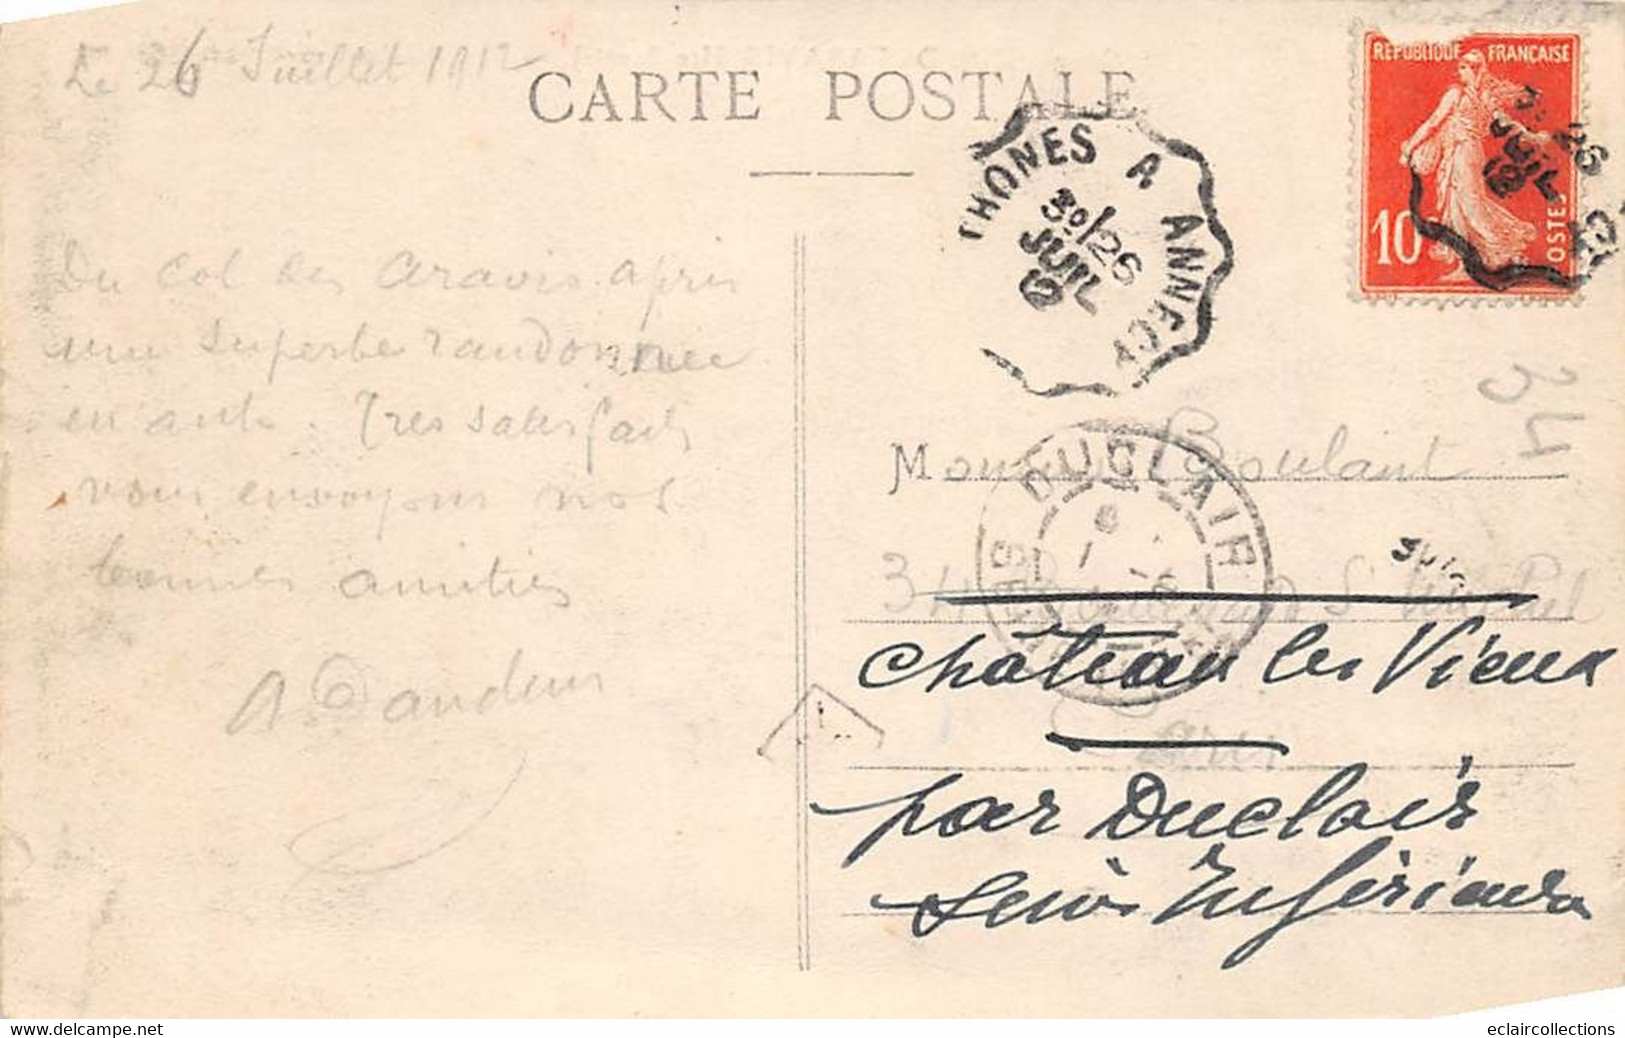 Le 26 Juillet 1912
CARTE POSTALE
REPUBLIQUE FRANÇAISE
10
POSTES
THONES A ANNECY
30/26
JUIL
12
26
JUIL
12
Du Col des Aravis après
une superbe randonnée
en auto. Très satisfaits
vous envoyons nos
bonnes amitiés
34
Monsieur Boulant
DUCLAIR
34 St
Paris
Château les Vieux
par Duclair
Seine Inférieure
eclaircollections